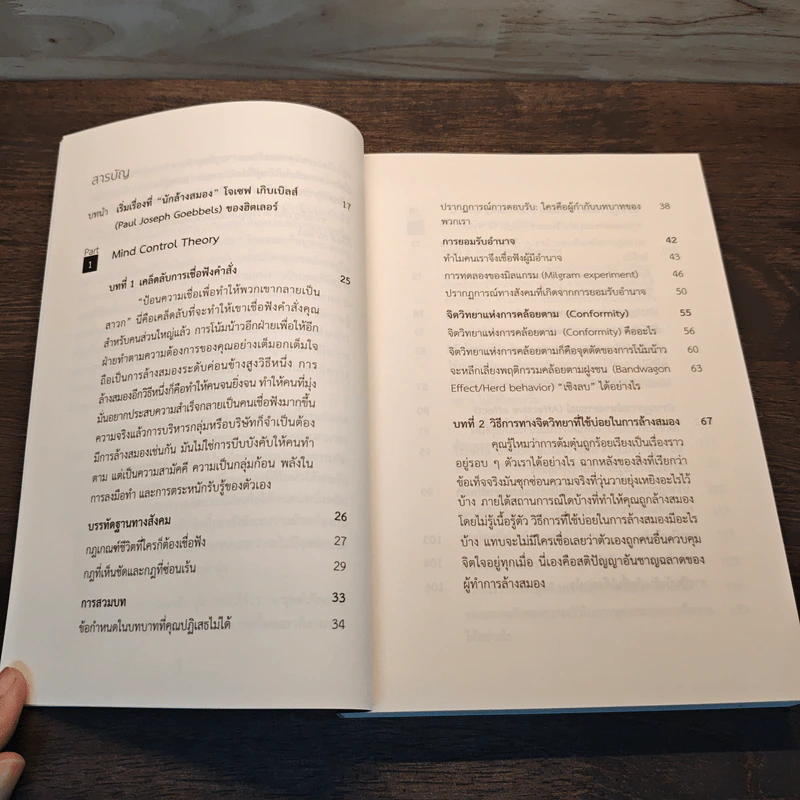 สารบัญ
บทนำ เริ่มเรื่องที่ “นักล้างสมอง” โจเซฟ เกิบเบิลส์ 17
(Paul Joseph Goebbels) ของฮิตเลอร์
Part 1 Mind Control Theory
บทที่ 1 เคล็ดลับการเชื่อฟังคำสั่ง 25
“ป้อนความเชื่อเพื่อทำให้พวกเขากลายเป็น
สาวก” นี่คือเคล็ดลับที่จะทำให้เขาเชื่อฟังคำสั่งคุณ
สำหรับคนส่วนใหญ่แล้ว การโน้มน้าวอีกฝ่ายเพื่อให้อีก
ฝ่ายทำตามความต้องการของคุณอย่างเต็มอกเต็มใจ
ถือเป็นการล้างสมองระดับค่อนข้างสูงวิธีหนึ่ง การ
ล้างสมองอีกวิธีหนึ่งก็คือทำให้คนจนยิ่งจน ทำให้คนที่มุ่ง
มั่นอยากประสบความสำเร็จกลายเป็นคนเชื่อฟังมากขึ้น
ความจริงแล้วการบริหารกลุ่มหรือบริษัทก็จำเป็นต้อง
มีการล้างสมองเช่นกัน มันไม่ใช่การบีบบังคับให้คนทำ
ตาม แต่เป็นความสามัคคี ความเป็นกลุ่มก้อน พลังใน
การลงมือทำ และการตระหนักรับรู้ของตัวเอง
บรรทัดฐานทางสังคม 26
กฎเกณฑ์ชีวิตที่ใครก็ต้องเชื่อฟัง 27
กฎที่เห็นชัดและกฎที่ซ่อนเร้น 29
การสวมบท 33
ข้อกำหนดในบทบาทที่คุณปฏิเสธไม่ได้ 34
ปรากฏการณ์การตอบรับ: ใครคือผู้กำกับบทบาทของ 38
พวกเรา
การยอมรับอำนาจ 42
ทำไมคนเราจึงเชื่อฟังผู้มีอำนาจ 43
การทดลองของมิลแกรม (Milgram experiment) 46
ปรากฏการณ์ทางสังคมที่เกิดจากการยอมรับอำนาจ 50
จิตวิทยาแห่งการคล้อยตาม (Conformity) 55
จิตวิทยาแห่งการคล้อยตาม (Conformity) คืออะไร 56
จิตวิทยาแห่งการคล้อยตามก็คือจุดตัดของการโน้มน้าว 60
จะหลีกเลี่ยงพฤติกรรมคล้อยตามฝูงชน (Bandwagon 63
Effect/Herd behavior) “เชิงลบ” ได้อย่างไร
บทที่ 2 วิธีการทางจิตวิทยาที่ใช้บ่อยในการล้างสมอง 67
คุณรู้ไหมว่าการต้มตุ๋นถูกร้อยเรียงเป็นเรื่องราว
อยู่รอบ ๆ ตัวเราได้อย่างไร ฉากหลังของสิ่งที่เรียกว่า
ข้อเท็จจริงมันซุกซ่อนความจริงที่วุ่นวายยุ่งเหยิงอะไรไว้
บ้าง ภายใต้สถานการณ์ใดบ้างที่ทำให้คุณถูกล้างสมอง
โดยไม่รู้เนื้อรู้ตัว วิธีการที่ใช้บ่อยในการล้างสมองมีอะไร
บ้าง แทบจะไม่มีใครเชื่อเลยว่าตัวเองถูกคนอื่นควบคุม
จิตใจอยู่ทุกเมื่อ นี่เองคือสติปัญญาอันชาญฉลาดของ
ผู้ทำการล้างสมอง